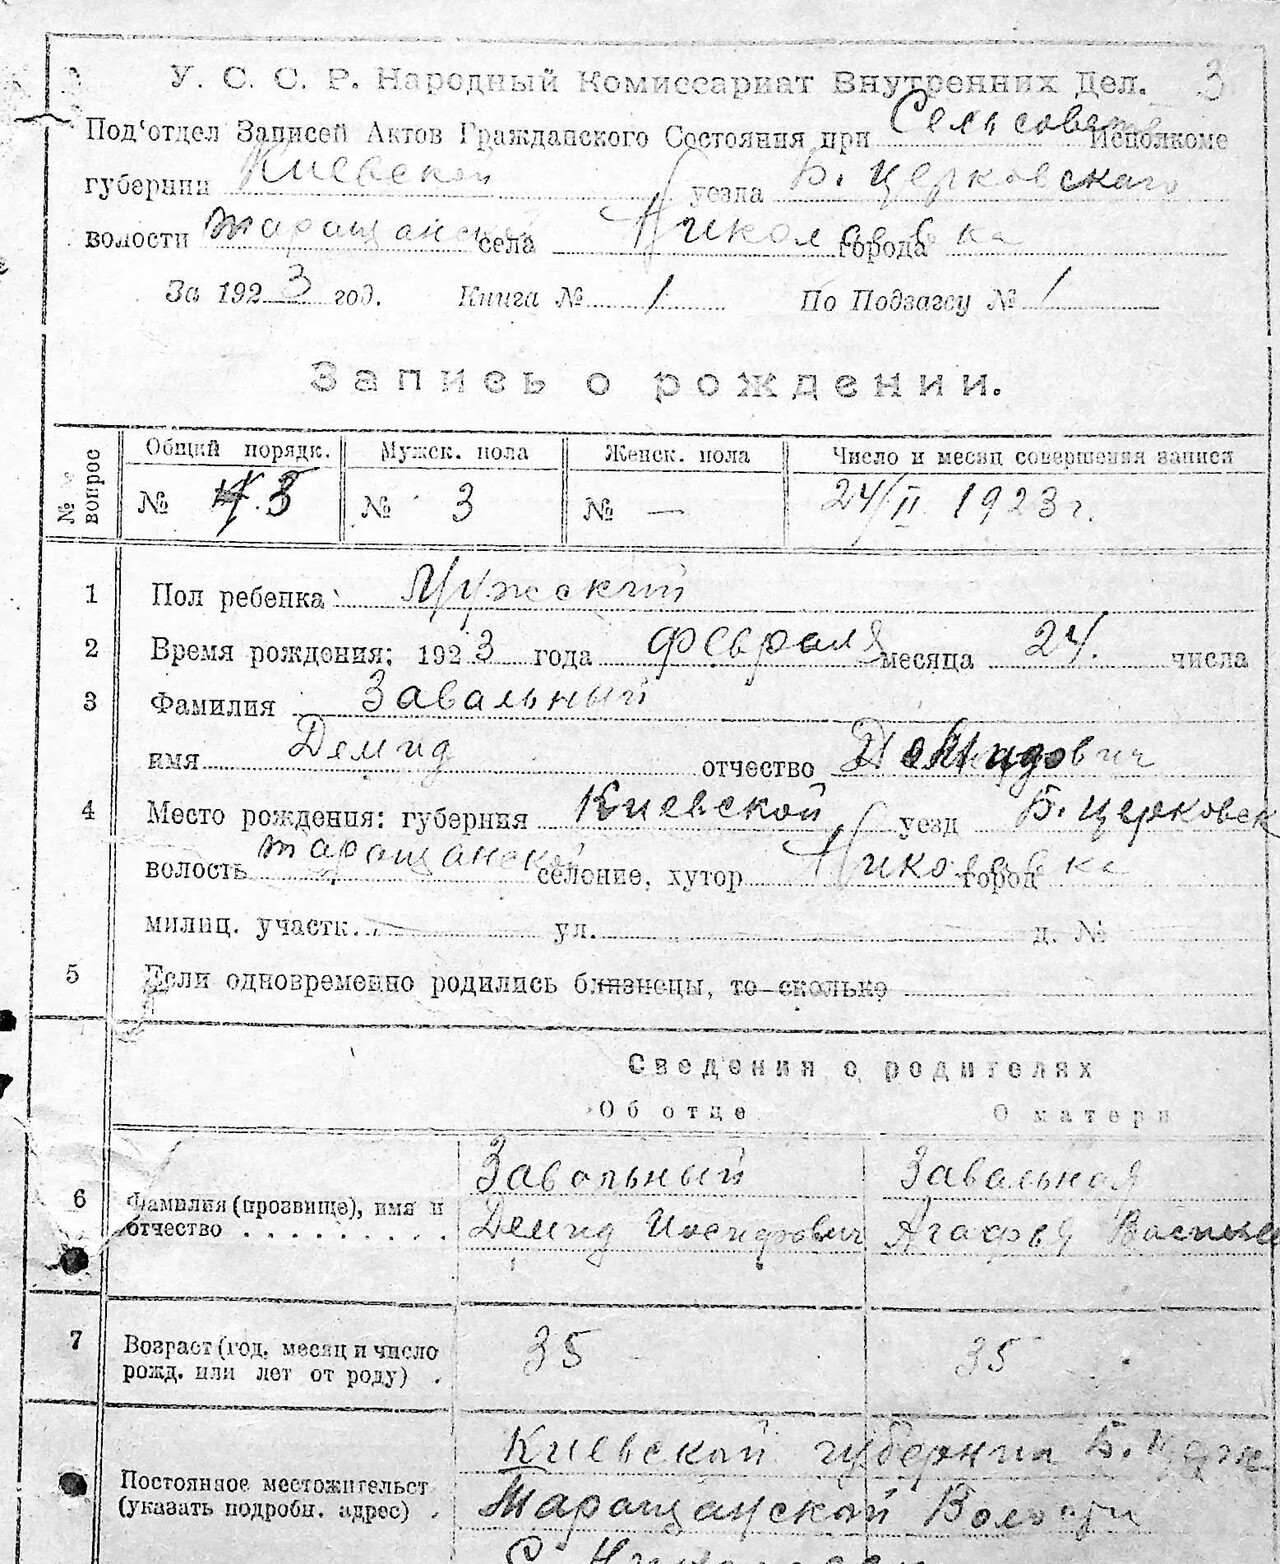 3
У. С. С. Р. Народный Комиссариат Внутренних Дел.
Под'отдел Записей Актов Гражданского Состояния при Сельсовете Исполкоме
губернии Киевской уезда Б. Церковскаго
волости Таращанской села Николаевка города
За 1923 год. Книга № 1 По Подзагсу № 1
Запись о рождении.
№ вопрос Общий порядк. Мужск. пола Женск. пола Число и месяц совершения записи
№ 3 № 3 № — 24/II 1923 г.
1 Пол ребенка Мужский
2 Время рождения: 1923 года февраля месяца 24. числа
3 Фамилия Завальный
имя Демид отчество Демидович
4 Место рождения: губерния Киевской уезд Б. Церковск
волость Таращанской селение, хутор Николаевка город
милиц. участк. ул. д. №
5 Если одновременно родились близнецы, то сколько
Сведения о родителях
Об отце О матери
6 Фамилия (прозвище), имя и отчество Завольный Завальная
Демид Иосифович Агафья
7 Возраст (год, месяц и число рожд. или лет от роду) 35 35
Постоянное местожительст (указать подробн. адрес) Киевской губернии Б. Церк
Таращанской Волости
С.